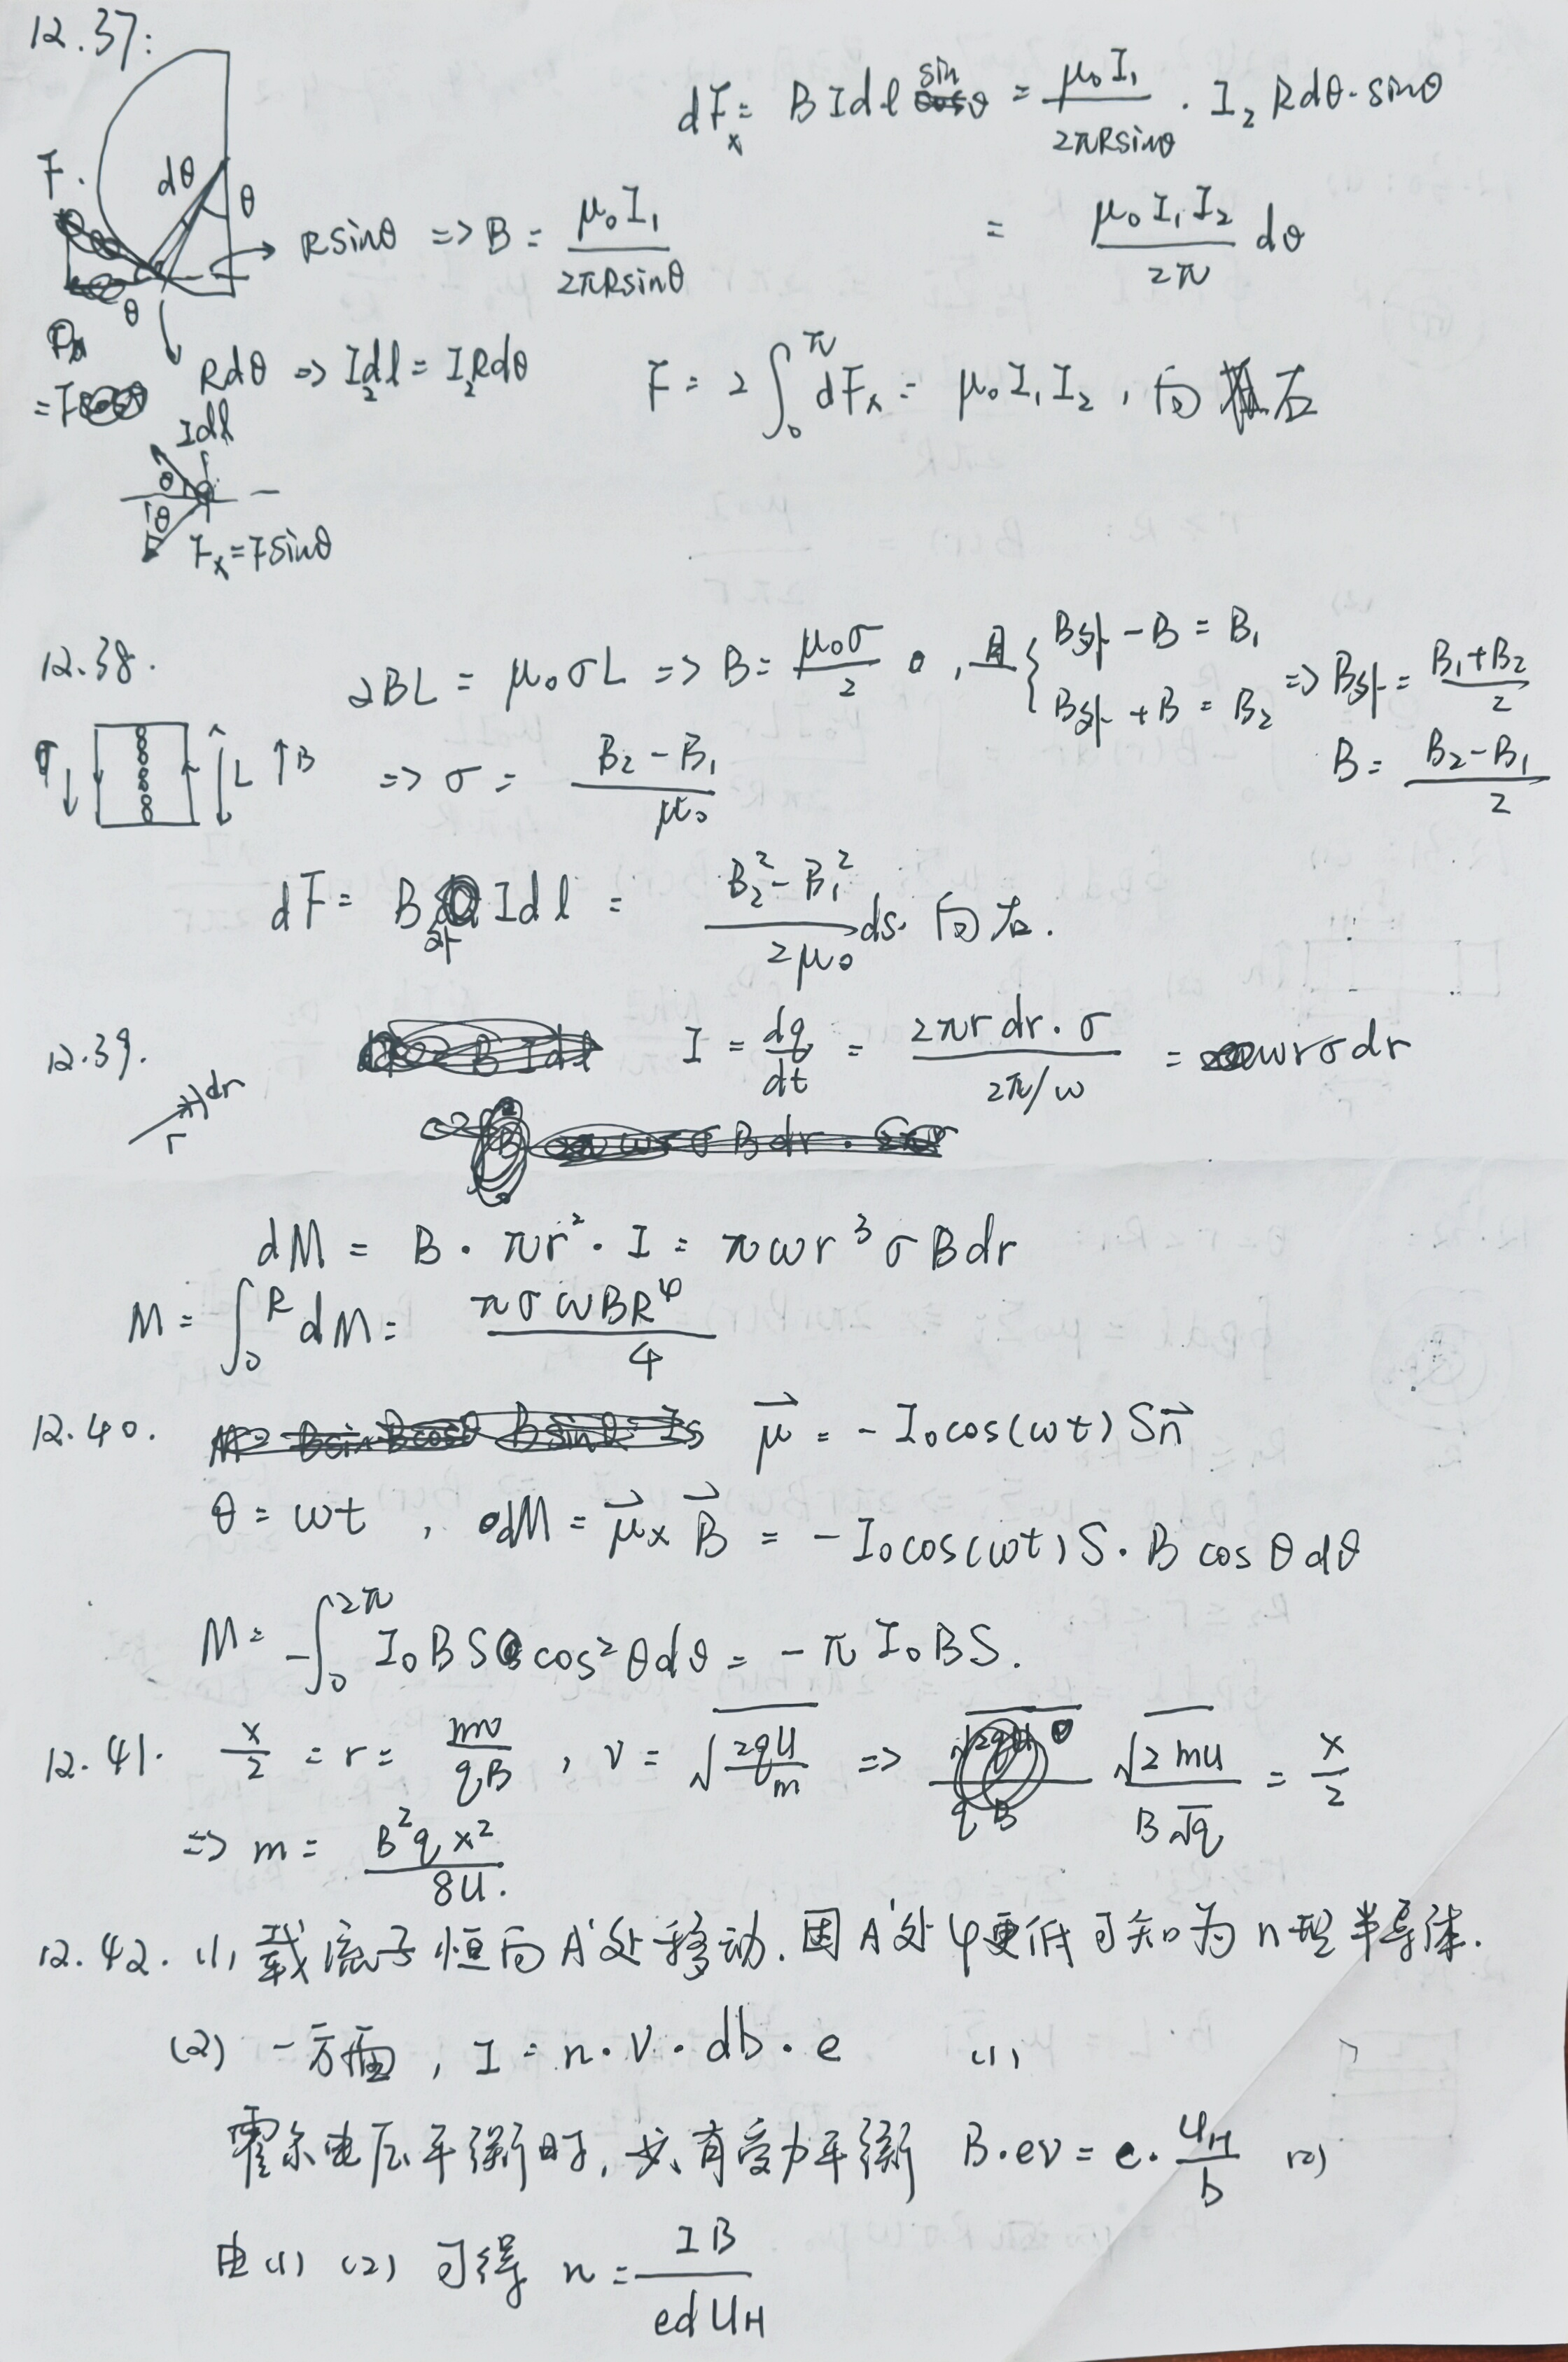 12.37:
dFx = BIdl sinθ = μ₀I₁/2πRsinθ · I₂Rdθ·sinθ
F. dθ θ
Rsinθ => B = μ₀I₁/2πRsinθ
= μ₀I₁I₂/2π dθ
θ
Rdθ => I₂dl = I₂Rdθ
F = 2∫₀^π dFx = μ₀I₁I₂, 向右
Idl
θ
θ
Fx = Fsinθ
12.38. 2BL = μ₀σL => B = μ₀σ/2, 且{B外 - B = B₁
B外 + B = B₂ => B外 = (B₁+B₂)/2
B = (B₂-B₁)/2
σ↓ L ↑B => σ = (B₂-B₁)/μ₀
dF = B外 Idl = (B₂²-B₁²)/2μ₀ ds.
12.39. I = dq/dt = 2πrdr·σ/(2π/ω) = ωrσdr
r dr
dM = B·πr²·I = πωr³σBdr
M = ∫₀^R dM = πσωBR⁴/4
12.40. μ⃗ = -I₀cos(ωt)Sn⃗
θ = ωt, dM = μ⃗×B⃗ = -I₀cos(ωt)S·Bcosθdθ
M = -∫₀^2π I₀BS cos²θdθ = -πI₀BS.
12.41. x/2 = r = mv/qB, v = √(2qU/m) => √(2mU)/B√q = x/2
=> m = B²qx²/8U.
12.42. (1) 载流子恒向A'处移动.因A'处φ更低可知为n型半导体.
(2) 一方面, I = n·v·db·e (1)
霍尔电压平衡时,必有受力平衡 B·ev = e·U_H/b (2)
由(1)(2)可得 n = IB/edU_H